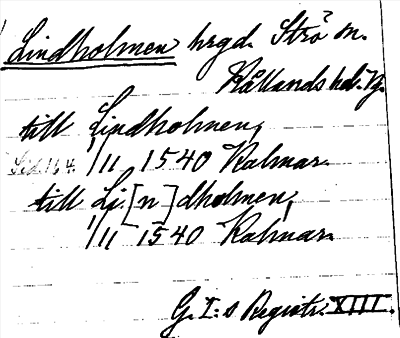 Lindholmen hrgd. Strö sn.
Kållands hd. Vg.
till Lindholmen,
1/11 1540 Kalmar.
till Li[n]dholmen,
1/11 1540 Kalmar.
G. I:s Registr. XIII.